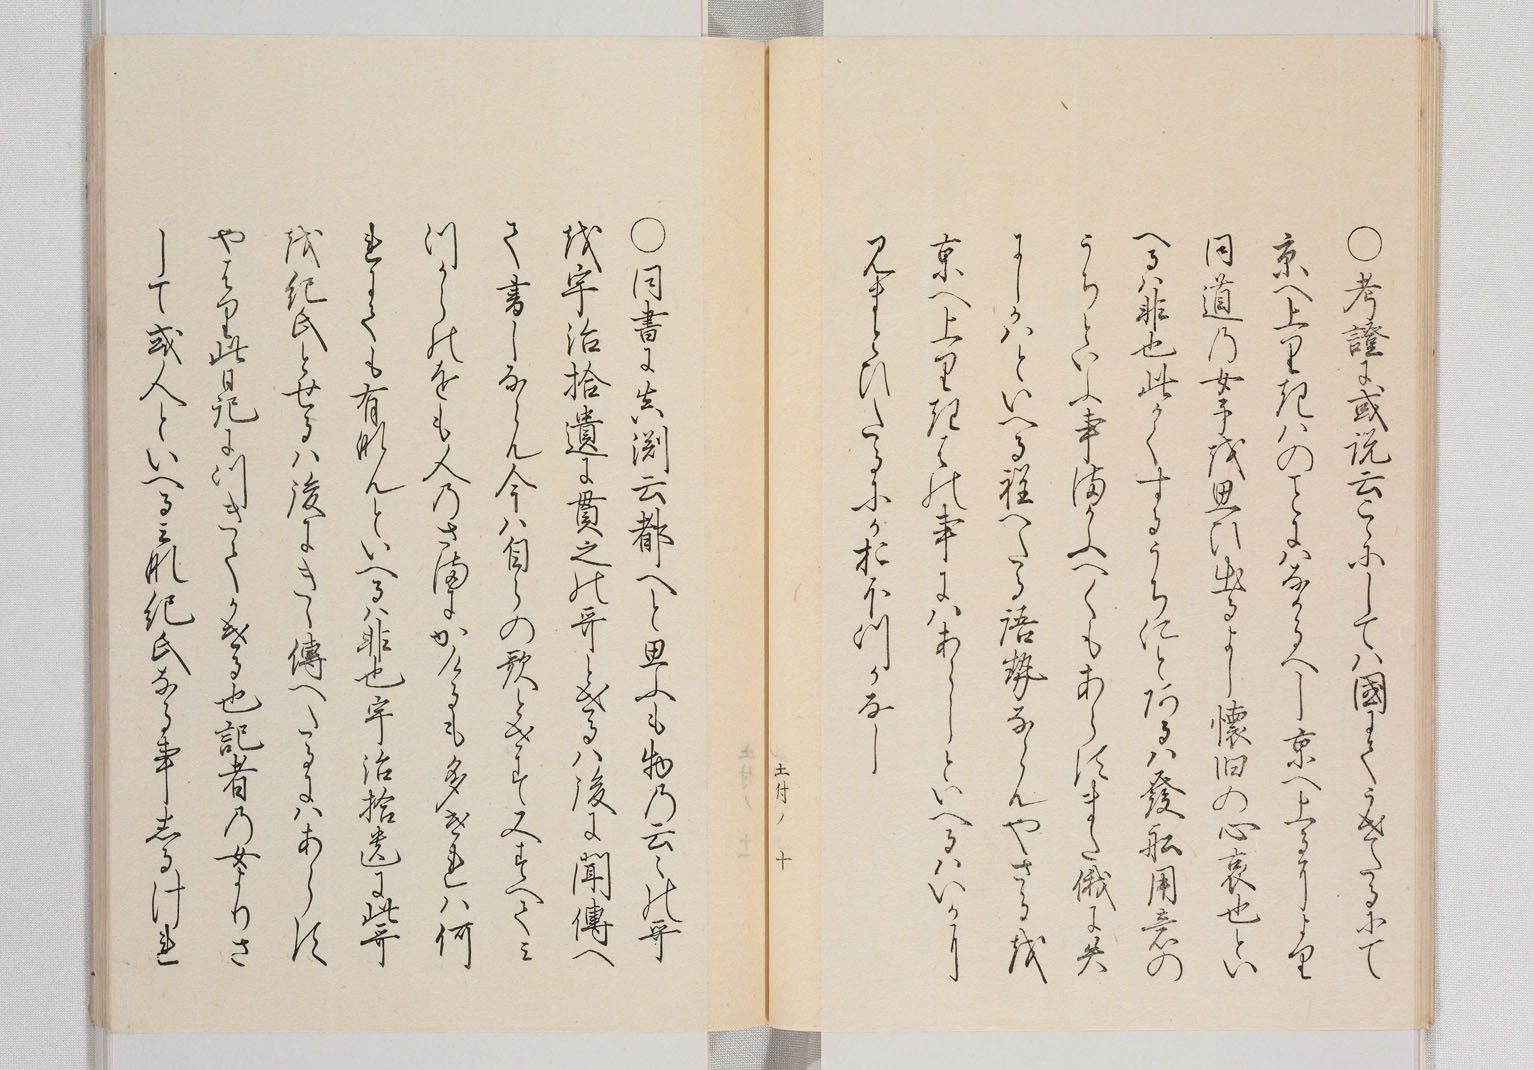 ○考證に或説云こゝにしては國にてうせたるにて
京へ上り起はのことにはなるへし京へ上るによ里
同道の女子を思ひ出るよし懐旧の心哀也とい
へるは非也此かくするうちにとあるは發船用意の
うちといふ事満かふへくもあらすまた俄に失
にしかはといへる程へたる語勢ならんやさるを
京へ上り起この事にはあらしといへるはいかに
見まとひたるにかおほつかなし
土付ノ 十
○同書に真渕云都へと思ふも物の云々の哥
を宇治拾遺に貫之の哥とせるは後に聞傳へ
て書しならん今は自らの歌とせす又すへてミ
つからのをも人のさまにかけるも多けれは何
れにても有なんといへるは非也宇治拾遺に此哥
を紀氏とせるは後にきゝ傳へたるにはあらす
やはり此日記につきてかける也記者の女よりさ
して或人といへるミな紀氏なる事しるけれ